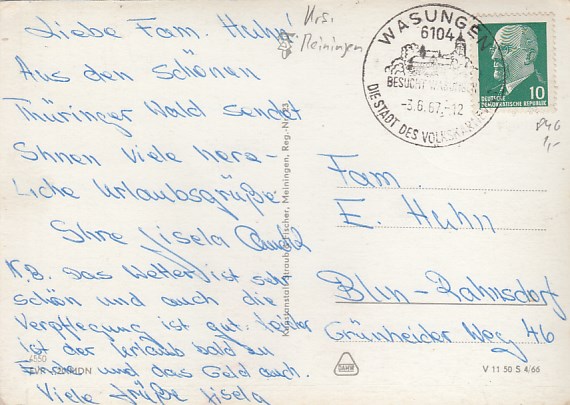 Liebe Fam. Huhn!
Aus den schönen
Thüringer Wald sendet
Ihnen viele herz-
liche Urlaubsgrüße
Ihre Gisela
N.B. Das Wetter ist sehr
schön und auch die
Verpflegung ist gut. Leider
ist der Urlaub bald zu
Ende und das Geld auch.
Viele Grüße Gisela
Krs.
Meiningen
WASUNGEN
6104
BESUCHT
DIE STADT DES
-3.6.67.-12
10
DEUTSCHE
DEMOKRATISCHE REPUBLIK
Fischer, Meiningen, Reg.-Nr. 23
Fam.
E. Huhn
Bln-Rahnsdorf
Grünheider Weg 46
4550
V 11 50 S 4/66